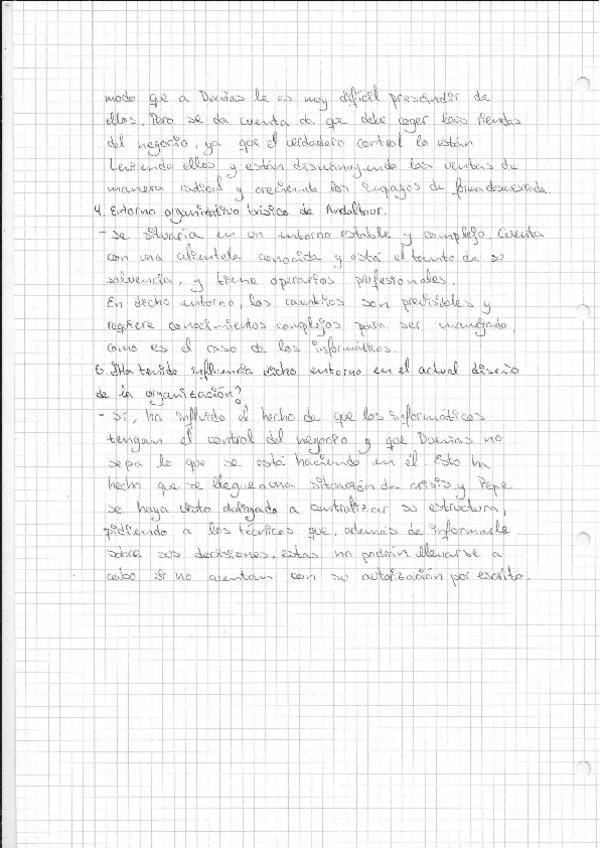 modo qe a Dueñas le es muy difícil prescindir de
ellos. Pero se da cuenta de que debe coger las riendas
del negocio, ya que el verdadero control lo están
teniendo ellos y están disminuyendo las ventas de
manera radical y creciendo los impagos de forma desmesurada.
4. Entorno organizativo básico de
- Se situaría en un entorno estable y complejo. Cuenta
con una clientela conocida y está al tanto de su
solvencia, y tiene operarios profesionales.
En dicho entorno, los cambios son previsibles y
requiere conocimientos complejos para ser manejado,
como es el caso de los informáticos.
5. ¿Ha tenido influencia dicho entorno en el actual diseño
de la organización?
- Sí, ha influido el hecho de que los informáticos
tengan el control del negocio y que Dueñas no
sepa lo que se está haciendo en él. Esto ha
hecho que se llegue a una situación de crisis y Pepe
se haya visto obligado a centralizar su estructura,
pidiendo a los técnicos que, además de informarle
sobre sus decisiones, estas no podrán llevarse a
cabo si no cuentan con su autorización por escrito.